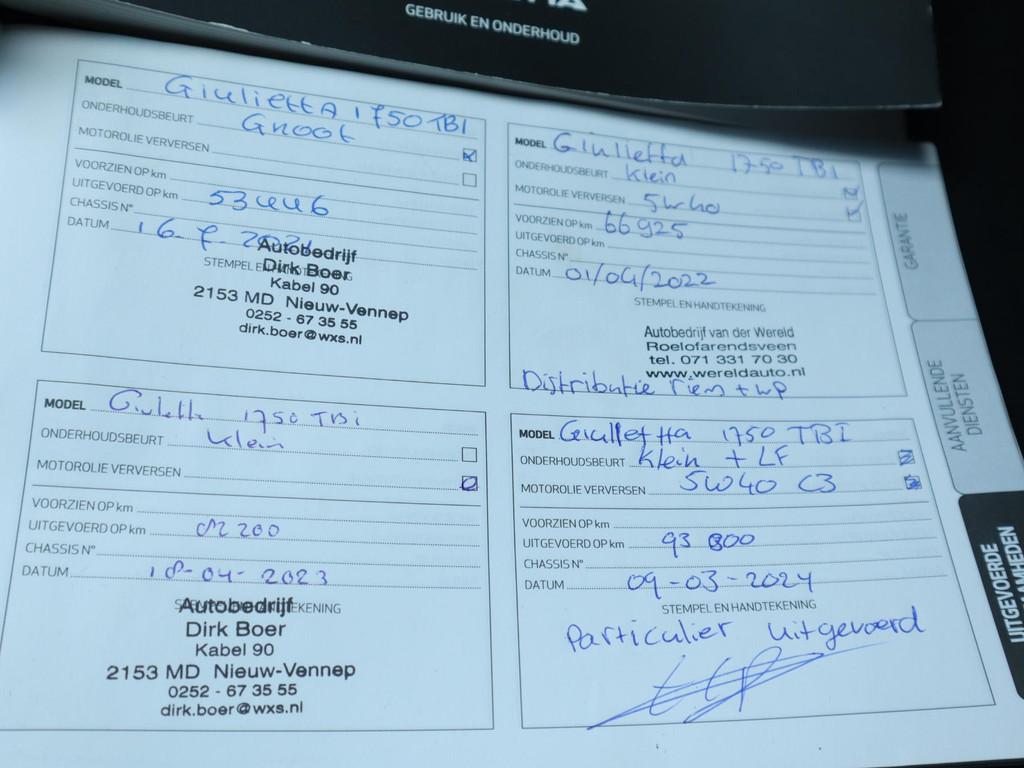 GEBRUIK EN ONDERHOUD
MODEL Giulietta 1750 TBI
ONDERHOUDSBEURT Groot
MOTOROLIE VERVERSEN
VOORZIEN OP km
UITGEVOERD OP km 53446
CHASSIS N°
DATUM 16-7-
STEMPEL EN
Autobedrijf
Dirk Boer
Kabel 90
2153 MD Nieuw-Vennep
0252 - 67 35 55
dirk.boer@wxs.nl
MODEL Giulletta 1750 TBI
ONDERHOUDSBEURT Klein
MOTOROLIE VERVERSEN 5w40
VOORZIEN OP km 66925
UITGEVOERD OP km
CHASSIS N°
DATUM 01/04/2022
STEMPEL EN HANDTEKENING
Autobedrijf van der Wereld
Roelofarendsveen
tel. 071 331 70 30
www.wereldauto.nl
Distributie riem + wp
MODEL Giuletta 1750 TBi
ONDERHOUDSBEURT Klein
MOTOROLIE VERVERSEN
VOORZIEN OP km
UITGEVOERD OP km 82200
CHASSIS N°
DATUM 18-04-2023
Autobedrijf
Dirk Boer
Kabel 90
2153 MD Nieuw-Vennep
0252 - 67 35 55
dirk.boer@wxs.nl
MODEL Giulletta 1750 TBI
ONDERHOUDSBEURT Klein + LF
MOTOROLIE VERVERSEN 5W40 C3
VOORZIEN OP km
UITGEVOERD OP km 93800
CHASSIS N°
DATUM 09-03-2024
STEMPEL EN HANDTEKENING
Particulier uitgevoerd
GARANTIE
AANVULLENDE
DIENSTEN
UITGEVOERDE